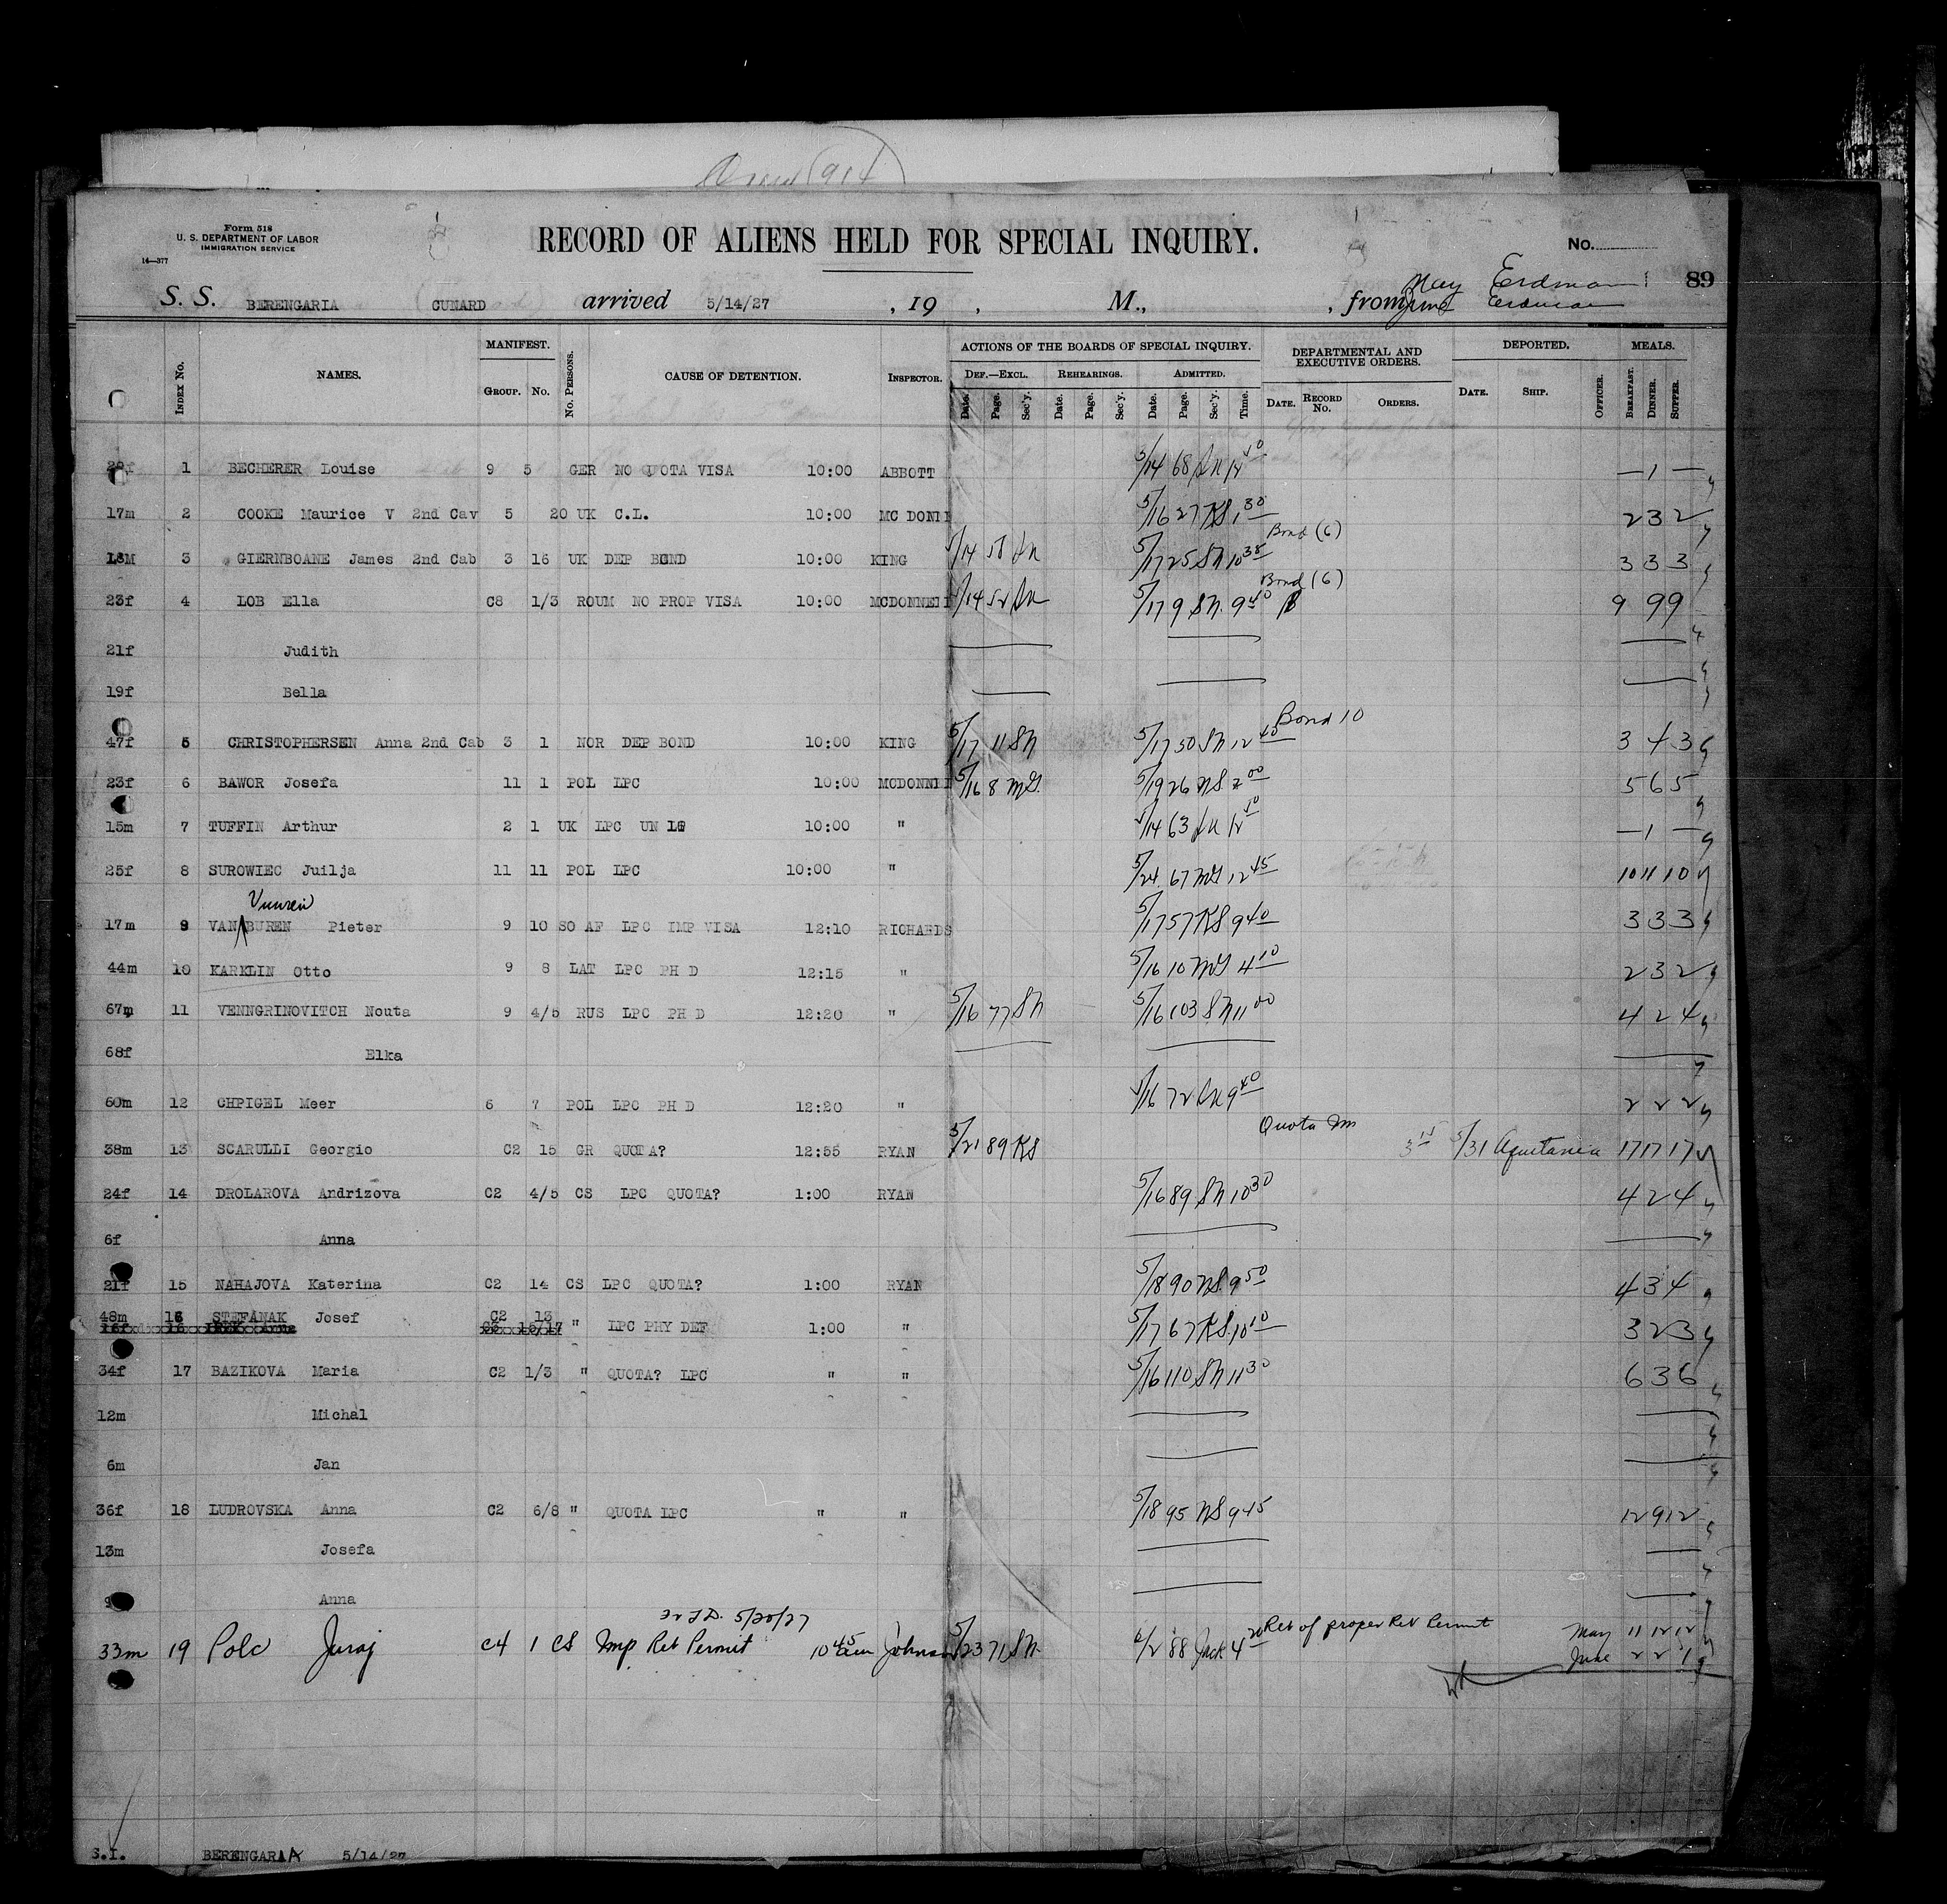 Form 518
U. S. DEPARTMENT OF LABOR
IMMIGRATION SERVICE
14—377
RECORD OF ALIENS HELD FOR SPECIAL INQUIRY.
No.
89
S. S. BERENGARIA CUNARD arrived 5/14/27 , 19 , M., , from May Erdman
June Erdman
INDEX No. NAMES. MANIFEST. GROUP. No. No. PERSONS. CAUSE OF DETENTION. INSPECTOR. ACTIONS OF THE BOARDS OF SPECIAL INQUIRY. DEPARTMENTAL AND EXECUTIVE ORDERS. DEPORTED. MEALS.
DEF.—EXCL. REHEARINGS. ADMITTED.
Date. Page. Sec'y. Date. Page. Sec'y. Date. Page. Sec'y. Time. DATE. RECORD No. ORDERS. DATE. SHIP. OFFICER. BREAKFAST. DINNER. SUPPER.
1 BECHERER Louise 9 5 GER NO QUOTA VISA 10:00 ABBOTT 5/14 68 — 1 —
17m 2 COOKE Maurice V 2nd Cav 5 20 UK C.L. 10:00 MC DONN 5/16 27 KS 1 30 2 3 2
Bond (6)
18M 3 GIERNBOANE James 2nd Cab 3 16 UK DEP BOND 10:00 KING 5/17 25 SN 10 35 3 3 3
Bond (6)
23f 4 LOB Ella C8 1/3 ROUM NO PROP VISA 10:00 MCDONNELL 5/14 52 5/17 9 SN 9 40 9 9 9
21f Judith
19f Bella
Bond 10
47f 5 CHRISTOPHERSEN Anna 2nd Cab 3 1 NOR DEP BOND 10:00 KING 5/17 11 SN 5/17 50 SN 12 45 3 4 3
23f 6 BAWOR Josefa 11 1 POL LPC 10:00 MCDONNEL 5/16 8 MG. 5/19 26 NS 2 00 5 6 5
15m 7 TUFFIN Arthur 2 1 UK LPC UN 16 10:00 " 5/14 63 — 1 —
25f 8 SUROWIEC Juilja 11 11 POL LPC 10:00 " 5/24 67 MG 12 45 10 11 10
Vuuren
17m 9 VAN BUREN Pieter 9 10 SO AF LPC IMP VISA 12:10 RICHARDS 5/17 57 KS 9 40 3 3 3
44m 10 KARKLIN Otto 9 8 LAT LPC PH D 12:15 " 5/16 10 MG 4 10 2 3 2
67m 11 VENNGRINOVITCH Nouta 9 4/5 RUS LPC PH D 12:20 " 5/16 77 SN 5/16 103 SN 11 00 4 2 4
68f Elka
60m 12 CHPIGEL Meer 6 7 POL LPC PH D 12:20 " 5/16 72 9 40 2 2 2
38m 13 SCARULLI Georgio C2 15 GR QUOTA? 12:55 RYAN 5/21 89 KS Quota 3 15 5/31 Aquitania 17 17 17
24f 14 DROLAROVA Andrizova C2 4/5 CS LPC QUOTA? 1:00 RYAN 5/16 89 SN 10 30 4 2 4
6f Anna
21f 15 NAHAJOVA Katerina C2 14 CS LPC QUOTA? 1:00 RYAN 5/18 90 NS 9 50 4 3 4
48m 16 STEFANAK Josef C2 13 " LPC PHY DEF 1:00 " 5/17 67 KS 10 10 3 2 3
34f 17 BAZIKOVA Maria C2 1/3 " QUOTA? LPC " " 5/16 110 SN 11 30 6 3 6
12m Michal
6m Jan
36f 18 LUDROVSKA Anna C2 6/8 " QUOTA LPC " " 5/18 95 NS 9 45 12 9 12
13m Josefa
9 Anna
5/20/27
33m 19 Polc Juraj C4 1 CS Imp Ret Permit 10 45 am Johnson 5/23 71 SN. 6/2 88 Jack 4 20 Ret of proper Ret Permit May 11 12 12
June 2 2 1
S.I. BERENGARIA 5/14/27